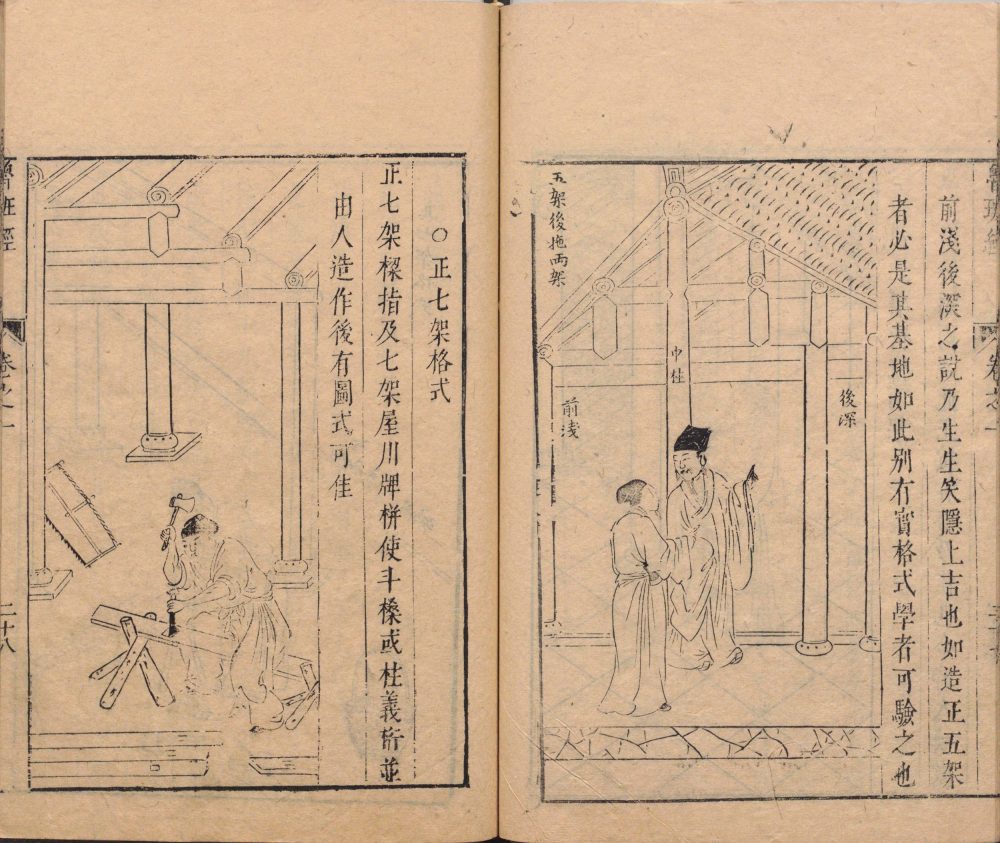 前淺後深之說乃生生笑隱上吉也如造正五架
者必是其基地如此別有實格式學者可驗之也
五架後拖兩架
中柱
後深
前淺
卷之一
○正七架格式
正七架樑指及七架屋川牌栟使斗槔或柱義桁並
由人造作後有圖式可佳
魯班經
卷之一
二十八